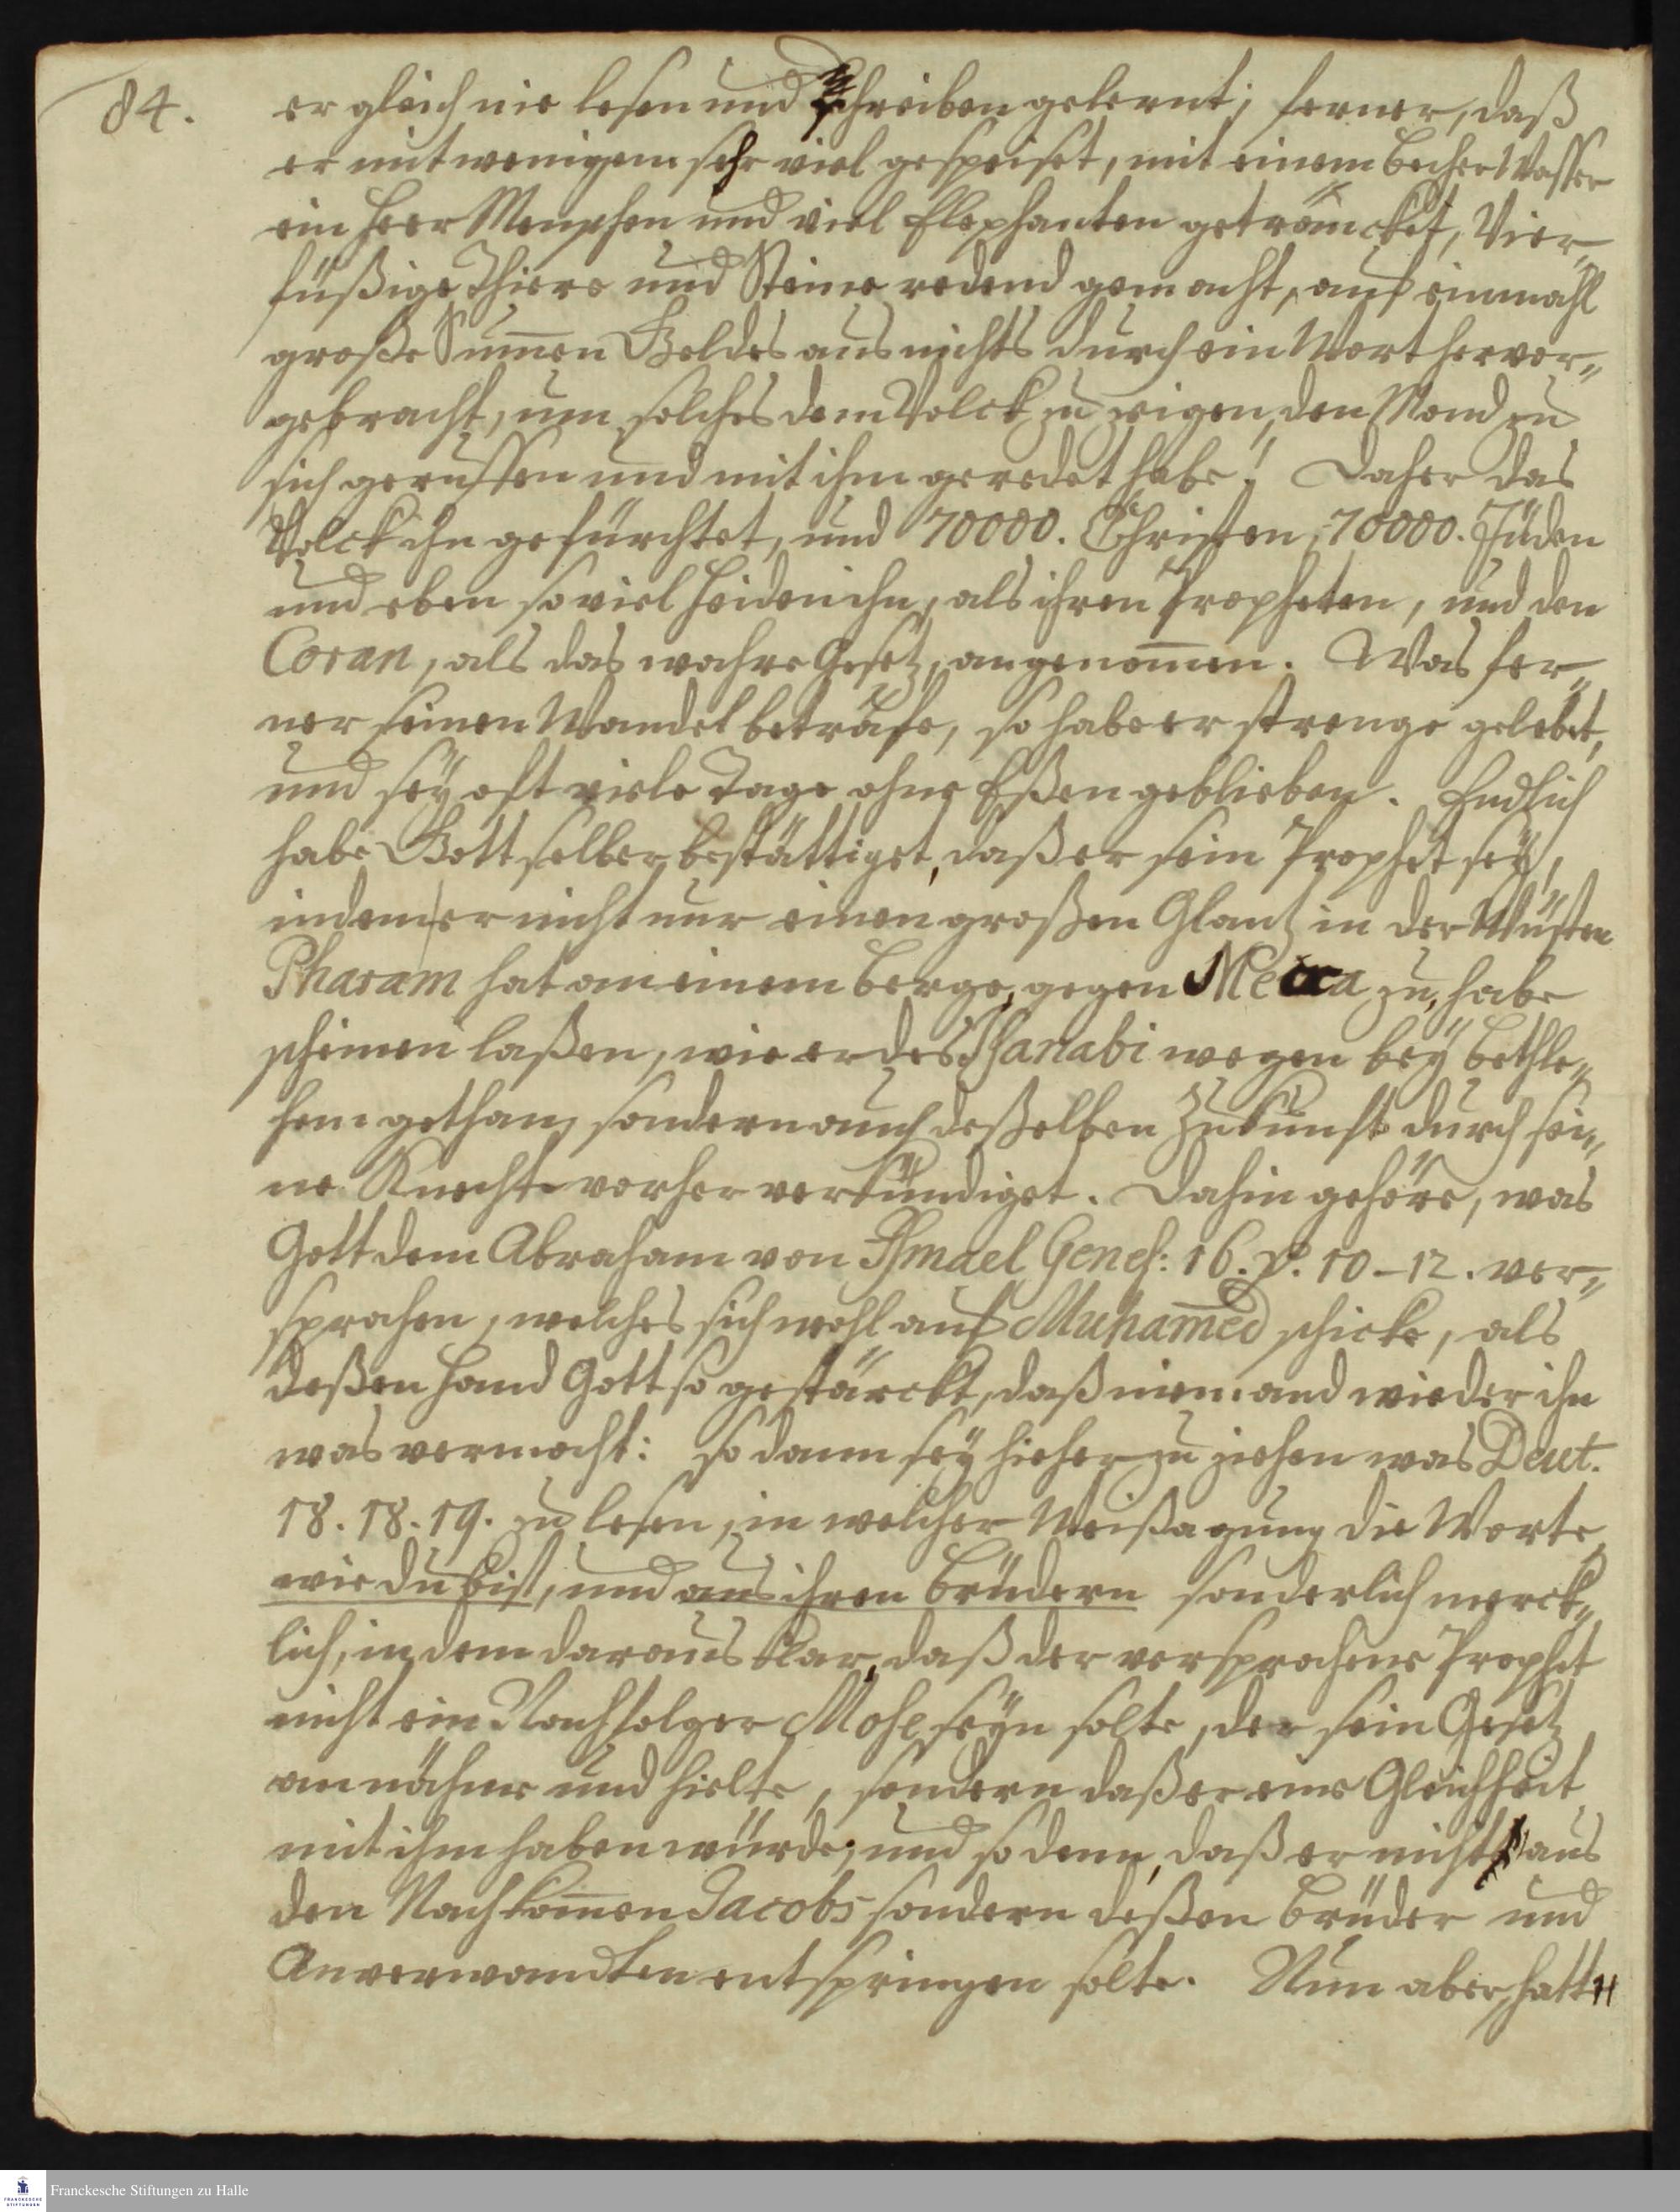 84.
er gleich nie lesen und schreiben gelernt; ferner, daß
er mit wenigem sehr viel gespeiset, mit einem Becher Wasser
ein Heer Menschen und viel Elephanten geträncket, Vier„
füßige Thiere und Steine redend gemacht, auf einmahl
große Sum̄en Goldes aus nichts durch ein Wort hervor„
gebracht, um solches dem Volck zu zeigen, den Mond zu
sich geruffen und mit ihm geredet habe! Daher das
Volck ihn gefürchtet, und 70000. Christen, 70000. Jüden
und eben so viel Heiden ihn, als ihren Propheten, und den
Coran, als das wahre Gesetz, angenom̄en. Was fer„
ner seinen Wandel beträfe, so habe er strenge gelebet,
und sey oft viele Tage ohne Eßen geblieben. Endlich
habe Gott selber bestättiget, daß er sein Prophet sey,
indem er nicht nur einen großen Glantz in der Wüsten
Pharam hat an einem Berge, gegen Mecca zu, habe
scheinen laßen, wie er des Isanabi wegen bey Bethle„
hem gethan, sondern auch deßelben Zukunft durch sei„
ne Knechte vorher verkündiget. Dahin gehöre, was
Gott dem Abraham von Ismael Genes: 16. v. 10-12. ver„
sprochen, welches sich wohl auf Muham̄ed schicke, als
deßen Hand Gott so gestärckt, daß niemand wieder ihn
was vermocht: so dann sey hieher zu ziehen was Deut.
18. 18. 19. zu lesen, in welcher Weißagung die Worte
wie du bist, und aus ihren Brüdern sonderlich merck„
lich, in dem daraus klar, daß der versprochene Prophet
nicht ein Nachfolger Mose seyn solte, der sein Gesetz
an nähme und hielte, sondern daß er eine Gleichheit
mit ihm haben würde; und so denn, daß er nicht aus
den Nachkom̄en Jacobs sondern deßen Brüder und
Anverwandten entspringen solte. Nun aber, hatt
Franckesche Stiftungen zu Halle
FRANCKESCHE
STIFTUNGEN